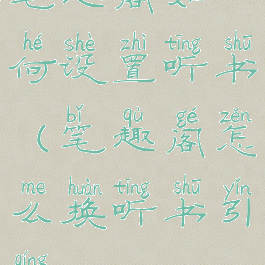 hé shè zhì tīng shū
何设置听书
bǐ qù gé zěn
（笔趣阁怎
me huàn tīng shū yǐn
么换听书引